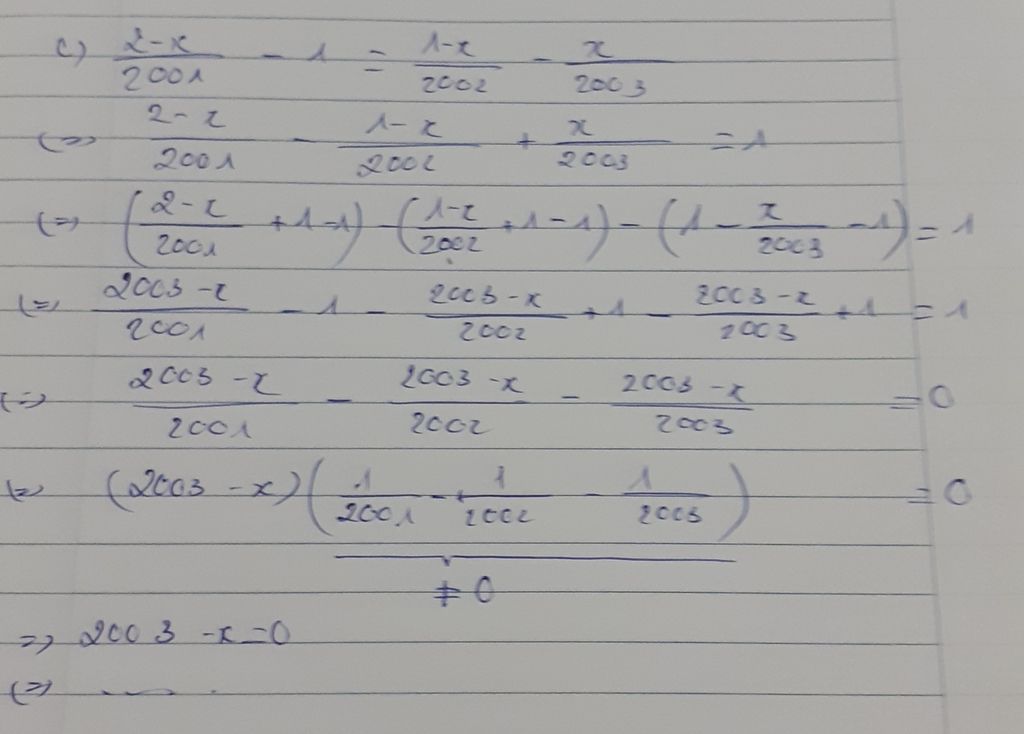 c) (2-x)/2001 - 1 = (1-x)/2002 - x/2003
(=> (2-x)/2001 - (1-x)/2002 + x/2003 = 1
(=> ((2-x)/2001 + 1 - 1) - ((1-x)/2002 + 1 - 1) - (1 - x/2003 - 1) = 1
(=> (2003-x)/2001 - 1 - (2003-x)/2002 + 1 - (2003-x)/2003 + 1 = 1
(=> (2003-x)/2001 - (2003-x)/2002 - (2003-x)/2003 = 0
(=> (2003-x)(1/2001 - 1/2002 - 1/2003) = 0
≠ 0
=> 2003 - x = 0
(=> ....